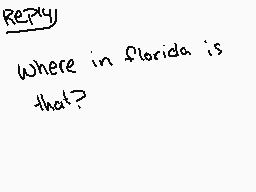 Reply
Where in florida is
that?